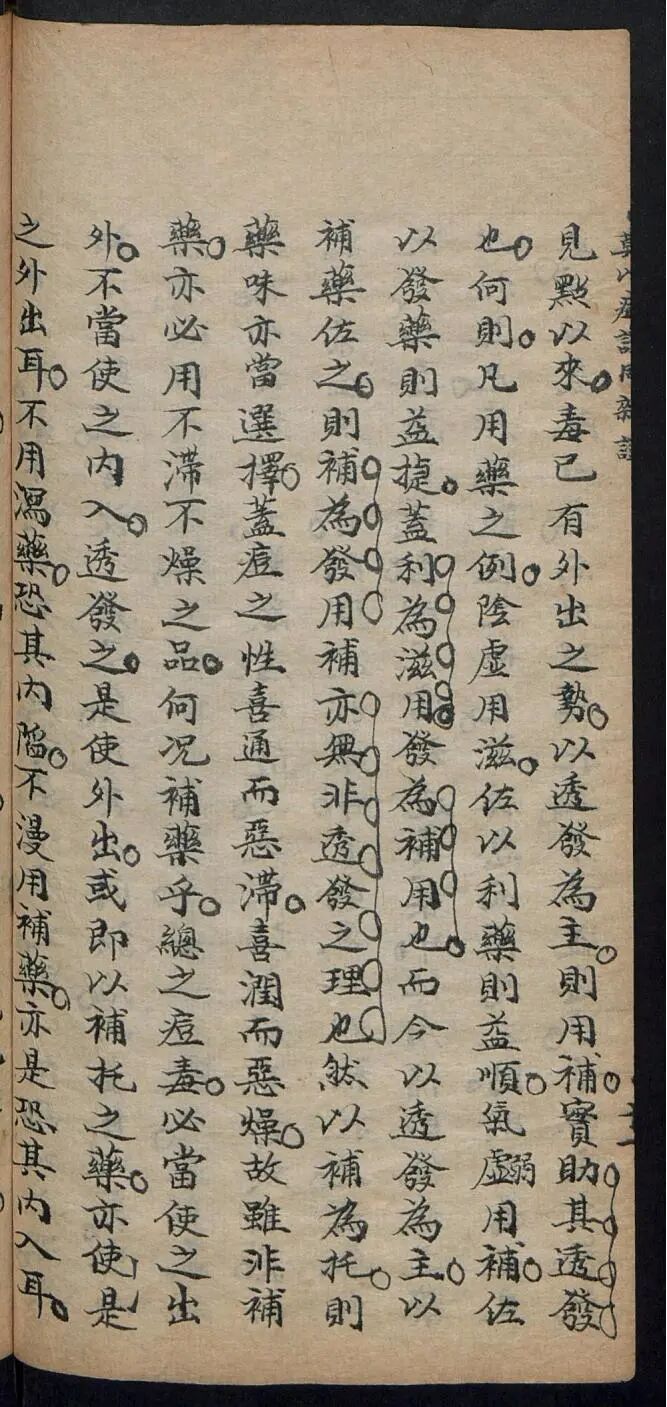 見點以來毒已有外出之勢以透發為主則用補實助其透發
也何則凡用藥之例陰虛用滋佐以利藥則益順氣虛弱用補佐
以發藥則益捷蓋利為滋用發為補用也而今以透發為主以
補藥佐之則補為發用補亦無非透發之理也然以補為托則
藥味亦當選擇蓋痘之性喜通而惡滯喜潤而惡燥故雖非補
藥亦必用不滯不燥之品何况補藥乎總之痘毒必當使之出
外不當使之內入透發之是使外出或即以補托之藥亦使是
之外出耳不用瀉藥恐其內陷不漫用補藥亦是恐其內入耳